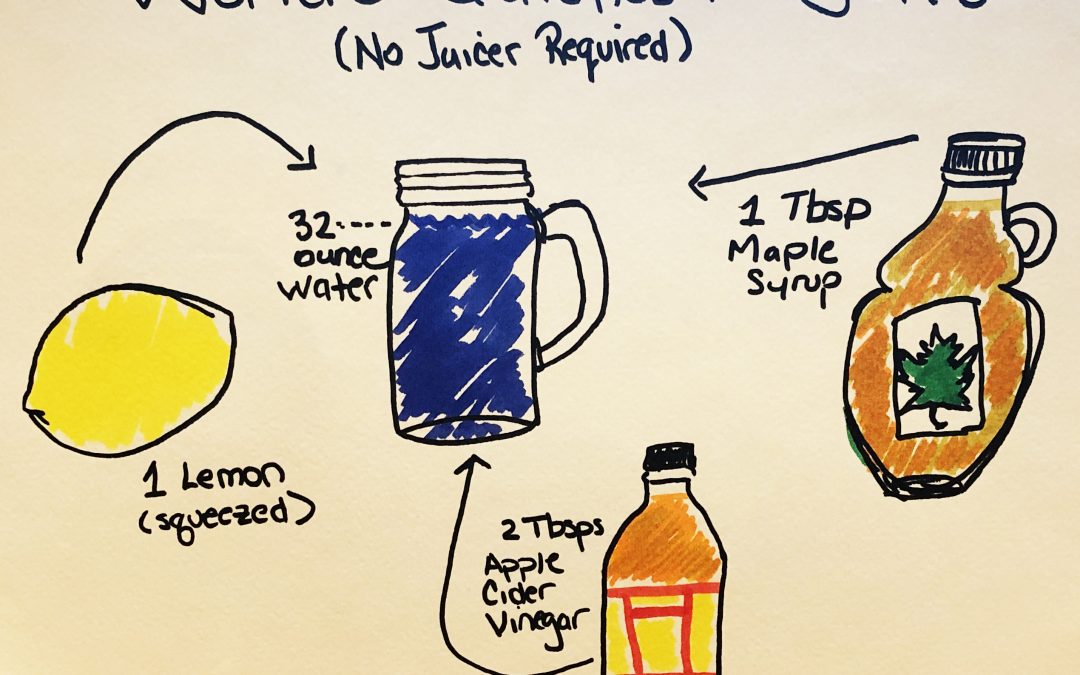 (No Juicer Required)
32
ounce
water
1 Tbsp
Maple
Syrup
1 Lemon
(squeezed)
2 Tbsps
Apple
Cider
Vinegar